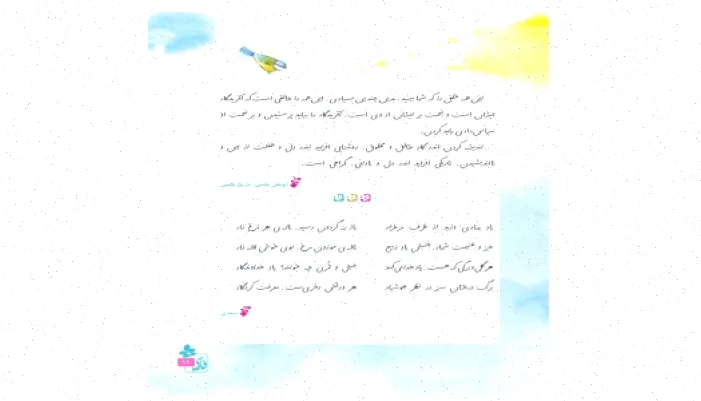 این همه خلق را که شما بینید، بدین چندین بسیاری، این همه را خالقی است که آفریدگار
ایشان است و نعمت بر ایشان از وی است. آفریدگار را بباید پرستیدن و بر نعمت او
سپاس‌داری باید کردن.
...اندیشه کردن اندر کار خالق و مخلوق، روشنایی افزاید اندر دل و غفلت از این و
نااندیشیدن، تاریکی افزاید اندر دل و نادانی، گمراهی است.
باد بهاری وزید، از طرف مرغزار
باز به گردون رسید، ناله‌ی هر مرغ زار
خیز و غنیمت شمار، جنبش باد ربیع
ناله‌ی موزون مرغ، بوی خوش لاله زار
هر گل و برگی که هست، یاد خدا می‌کند
بلبل و قمری چه خواند؟ یاد خداوندگار
برگ درختان سبز، در نظر هوشیار
هر ورقش دفتری‌ست، معرفت کردگار